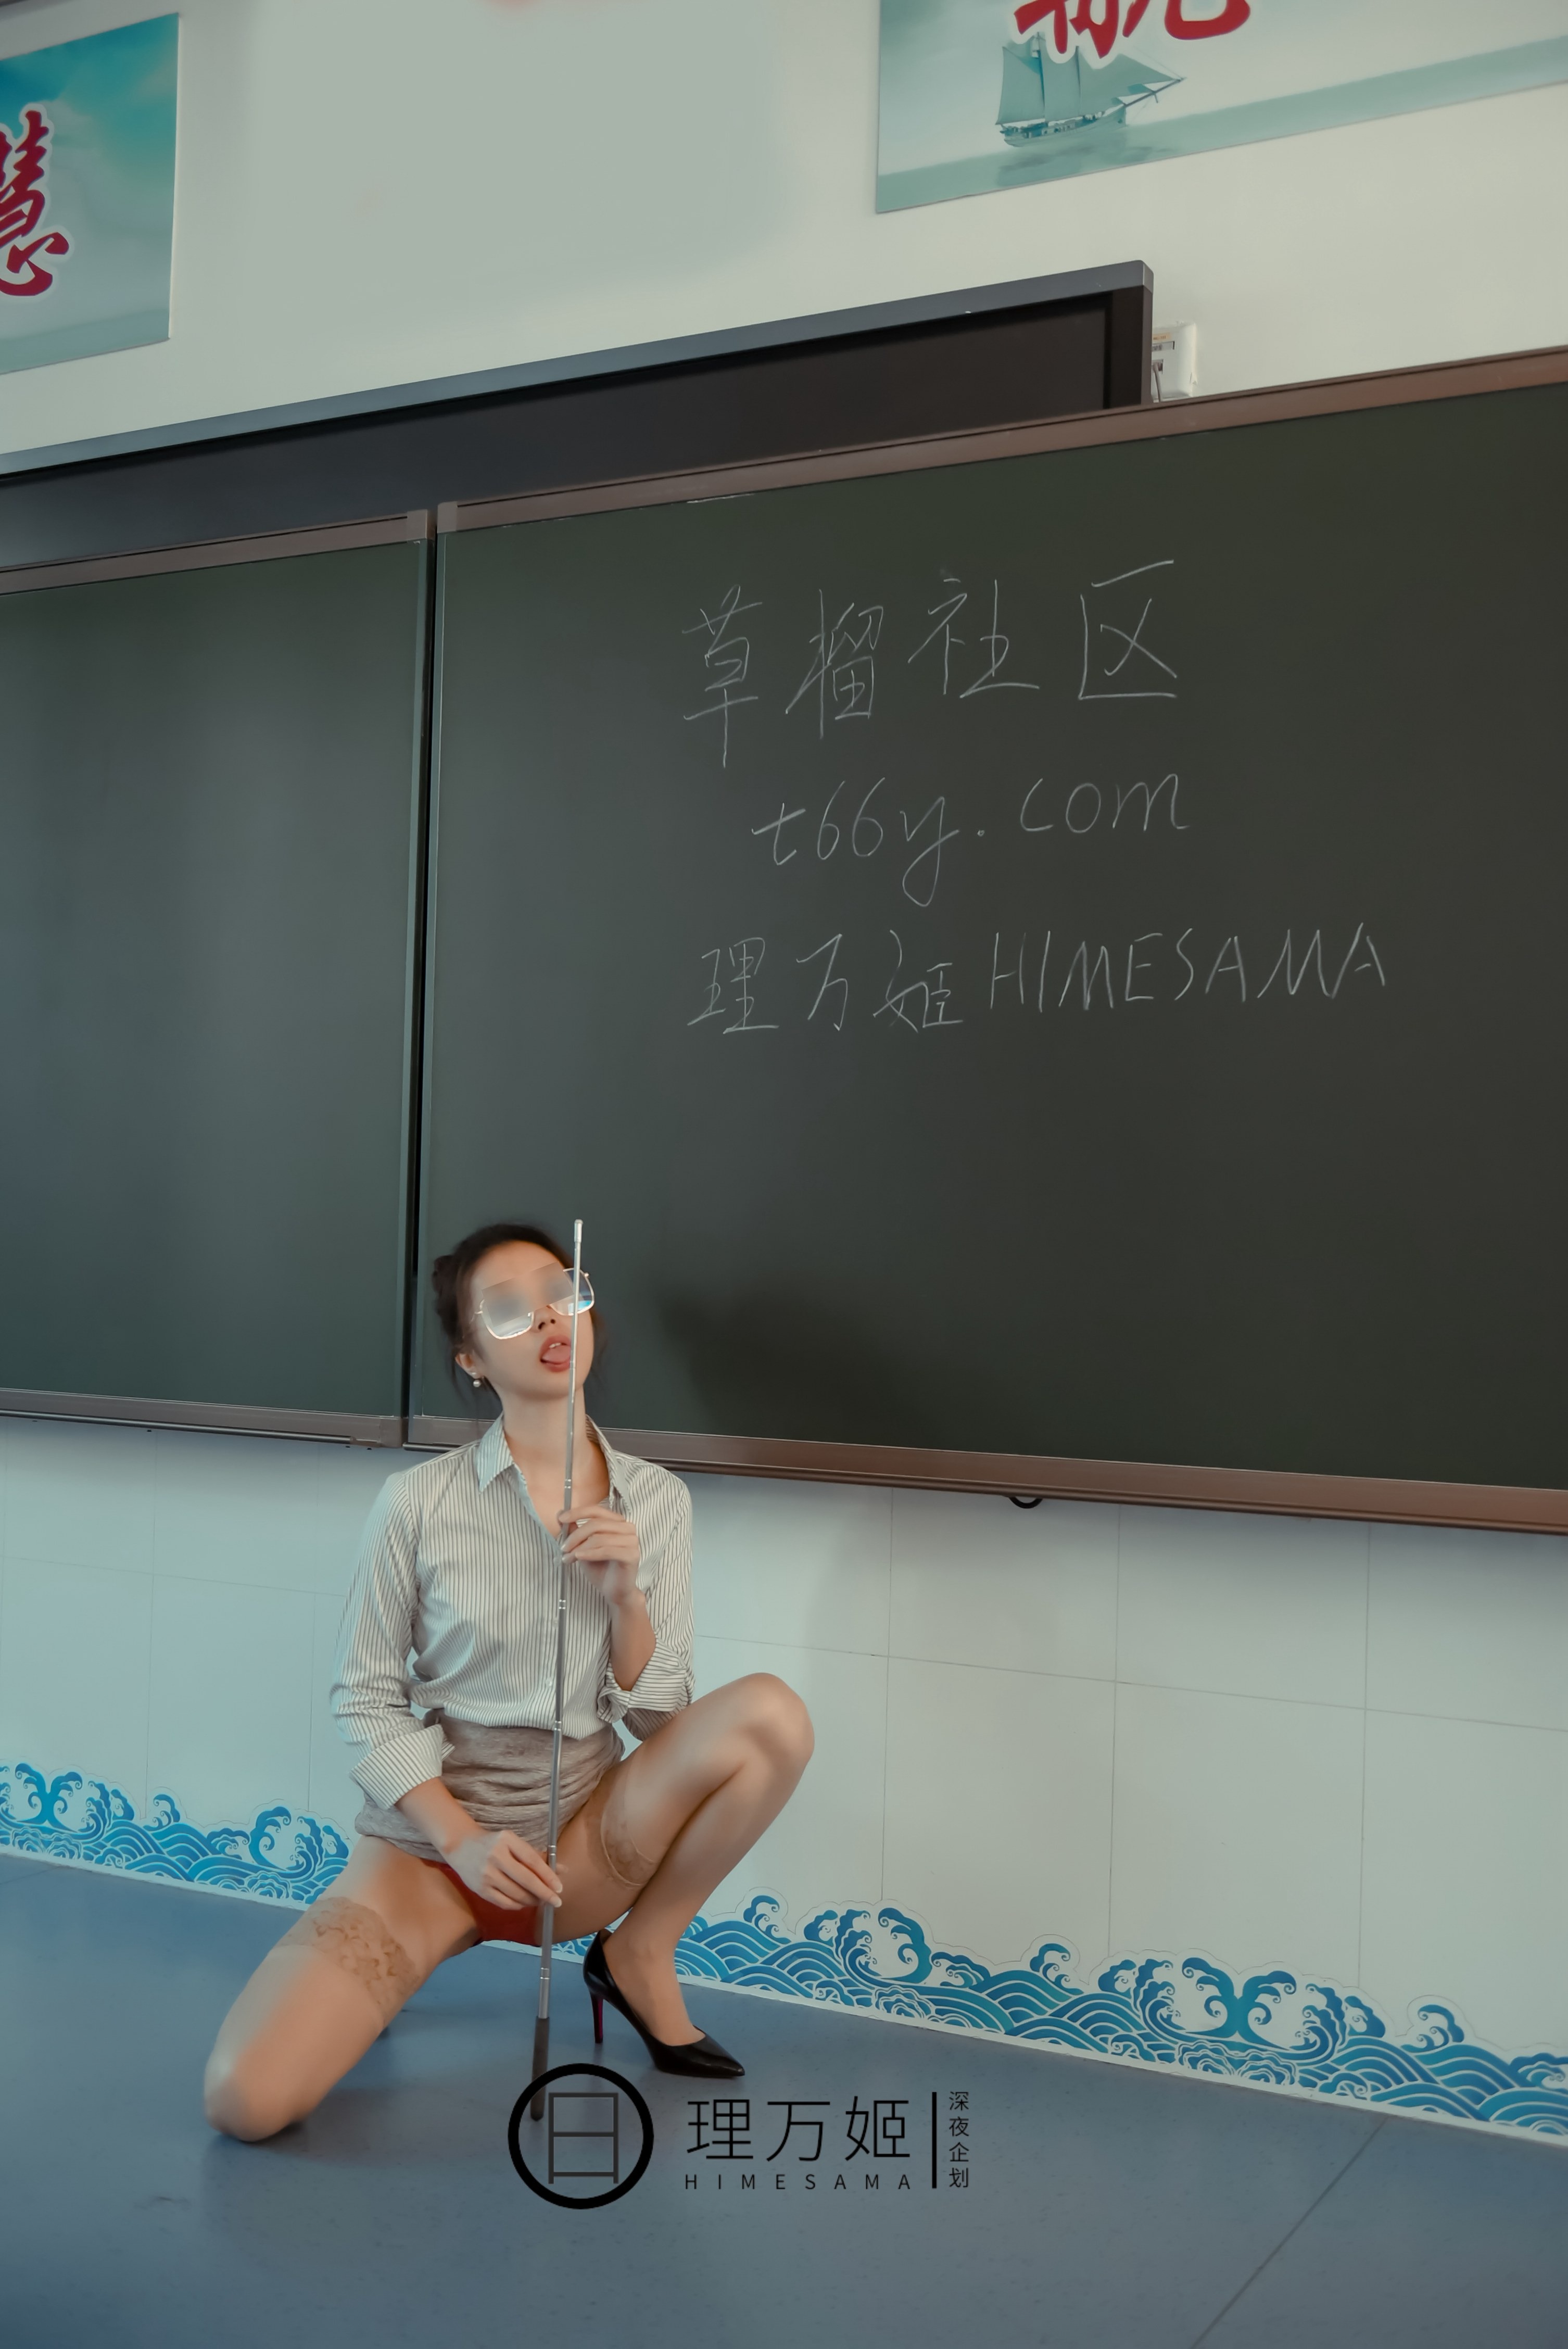 慧
航
草榴社区
t66y.com
理万姬HIMESAMA
理万姬
HIMESAMA
深夜企划